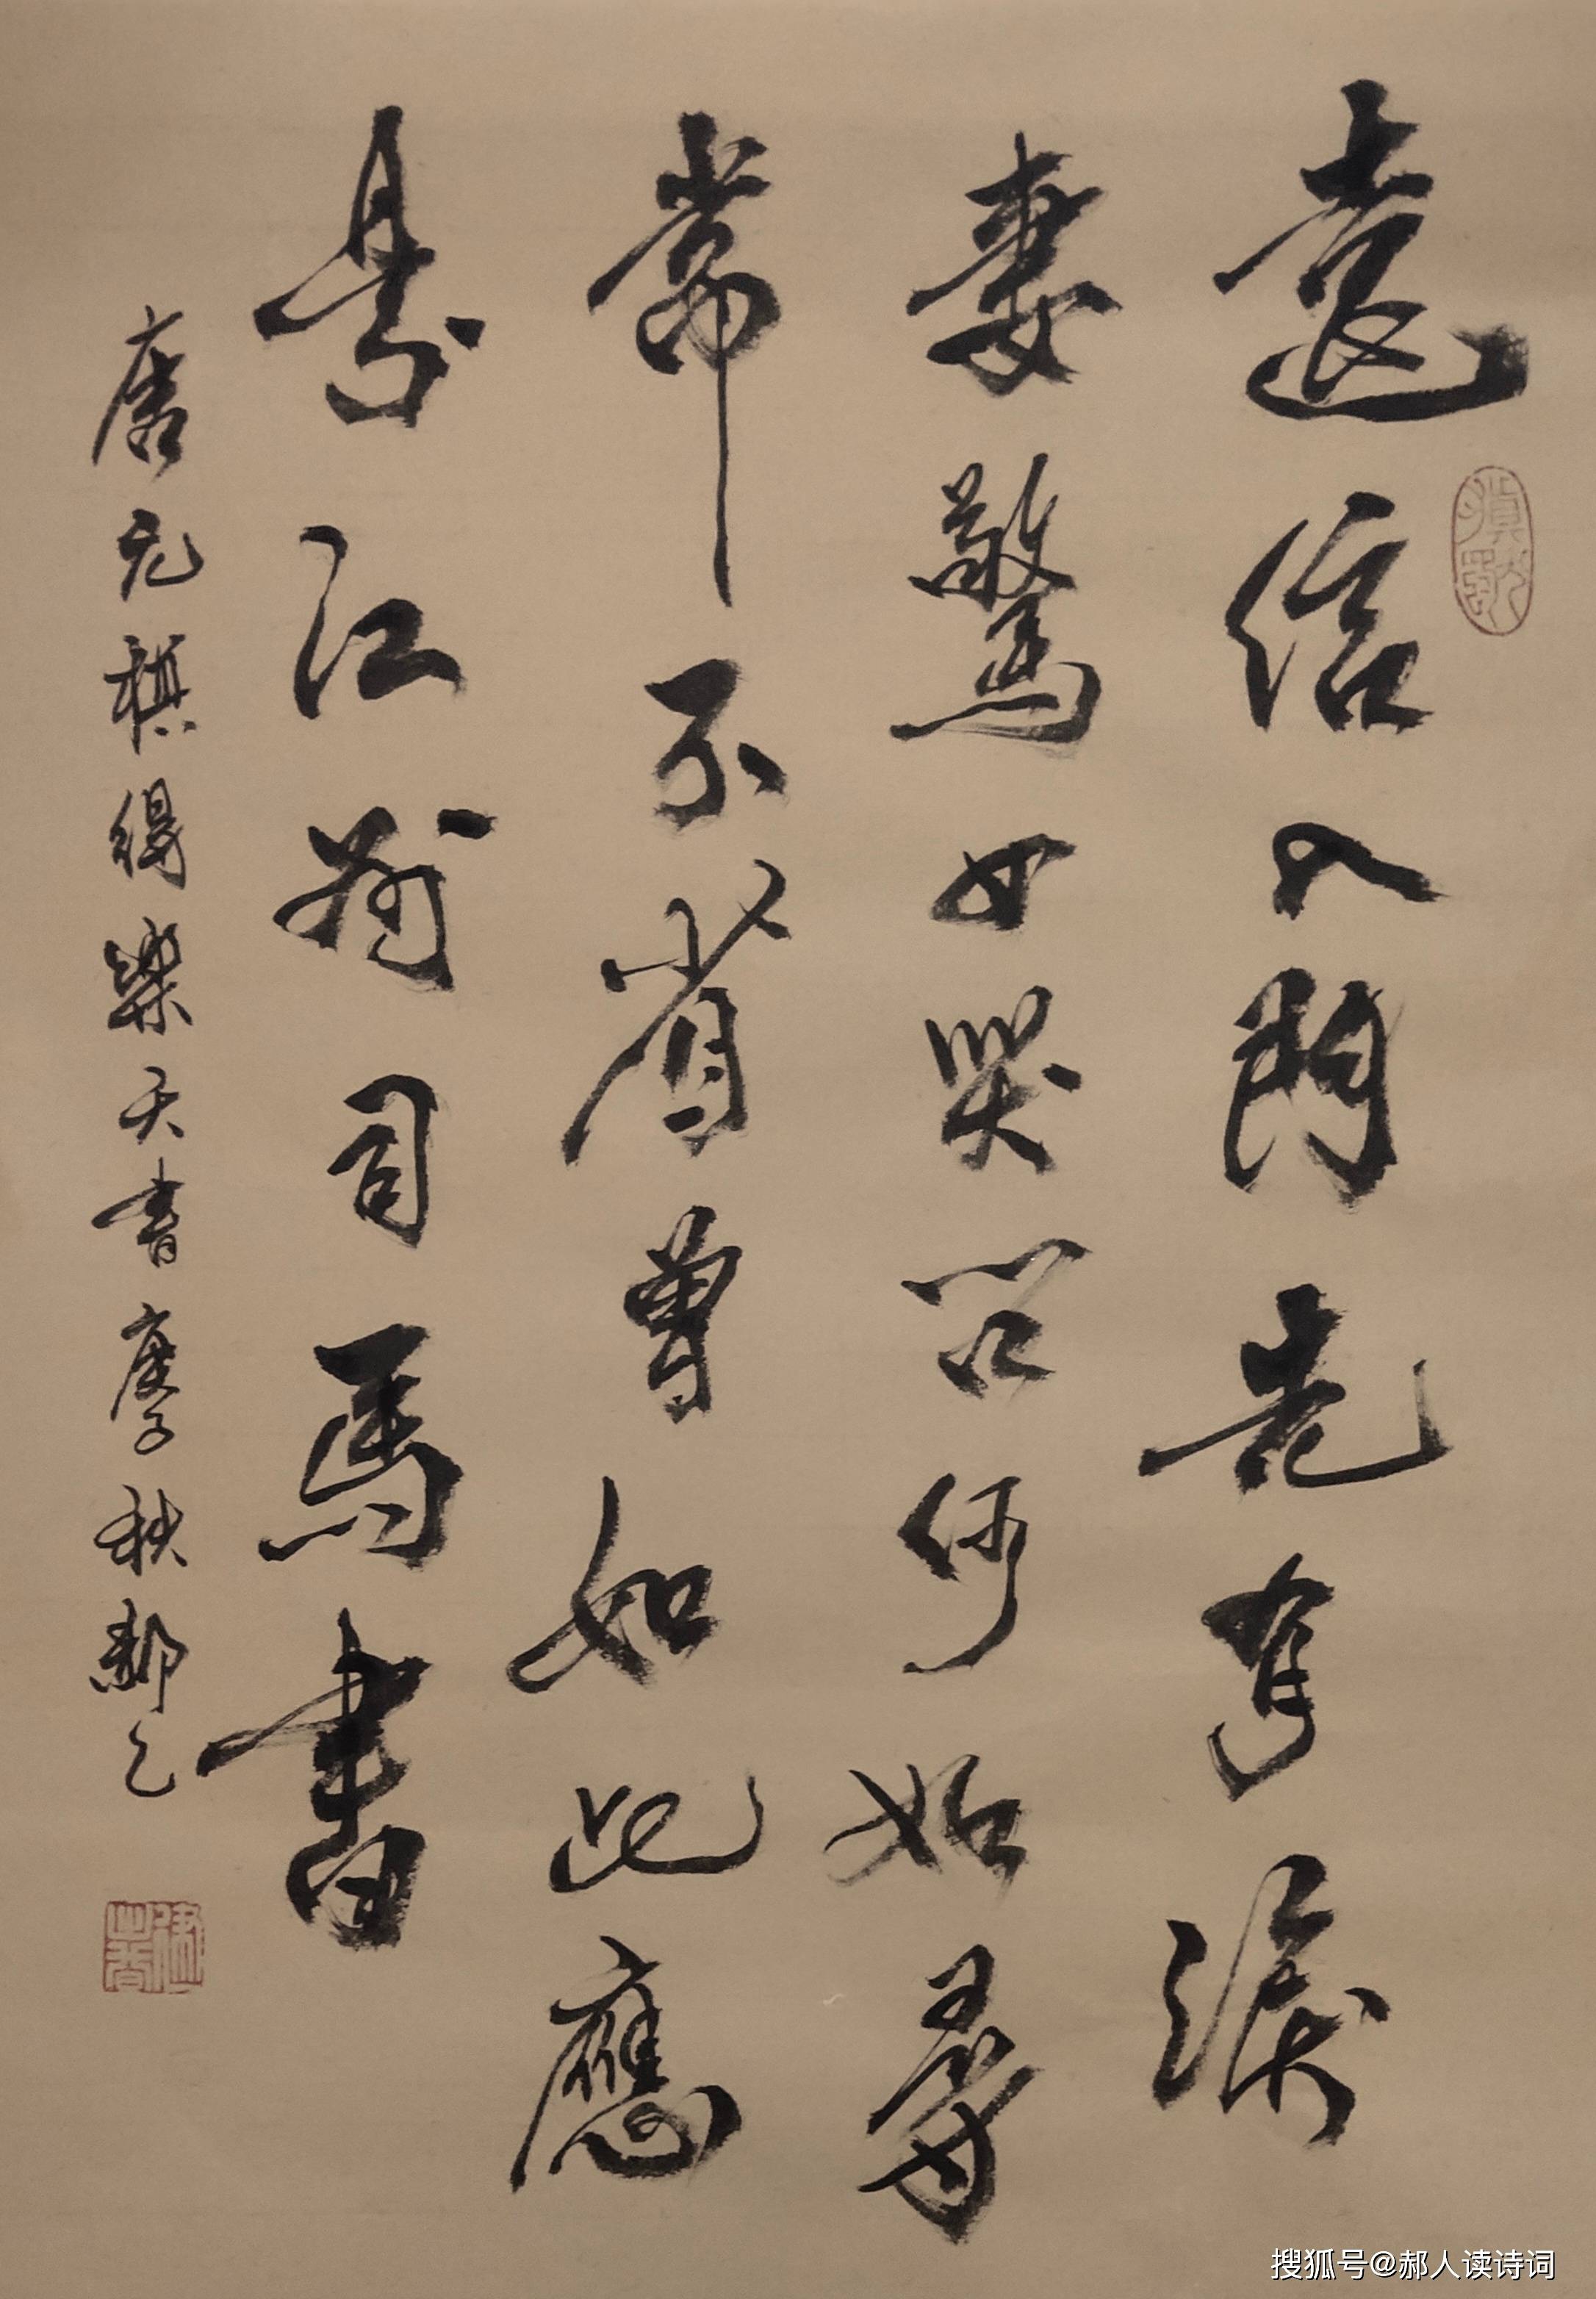 遠信入門先有淚
妻驚女哭問何如尋
常不省曾如此應
是江州司馬書
唐元稹得樂天書庚子秋郝之
搜狐号@郝人读诗词